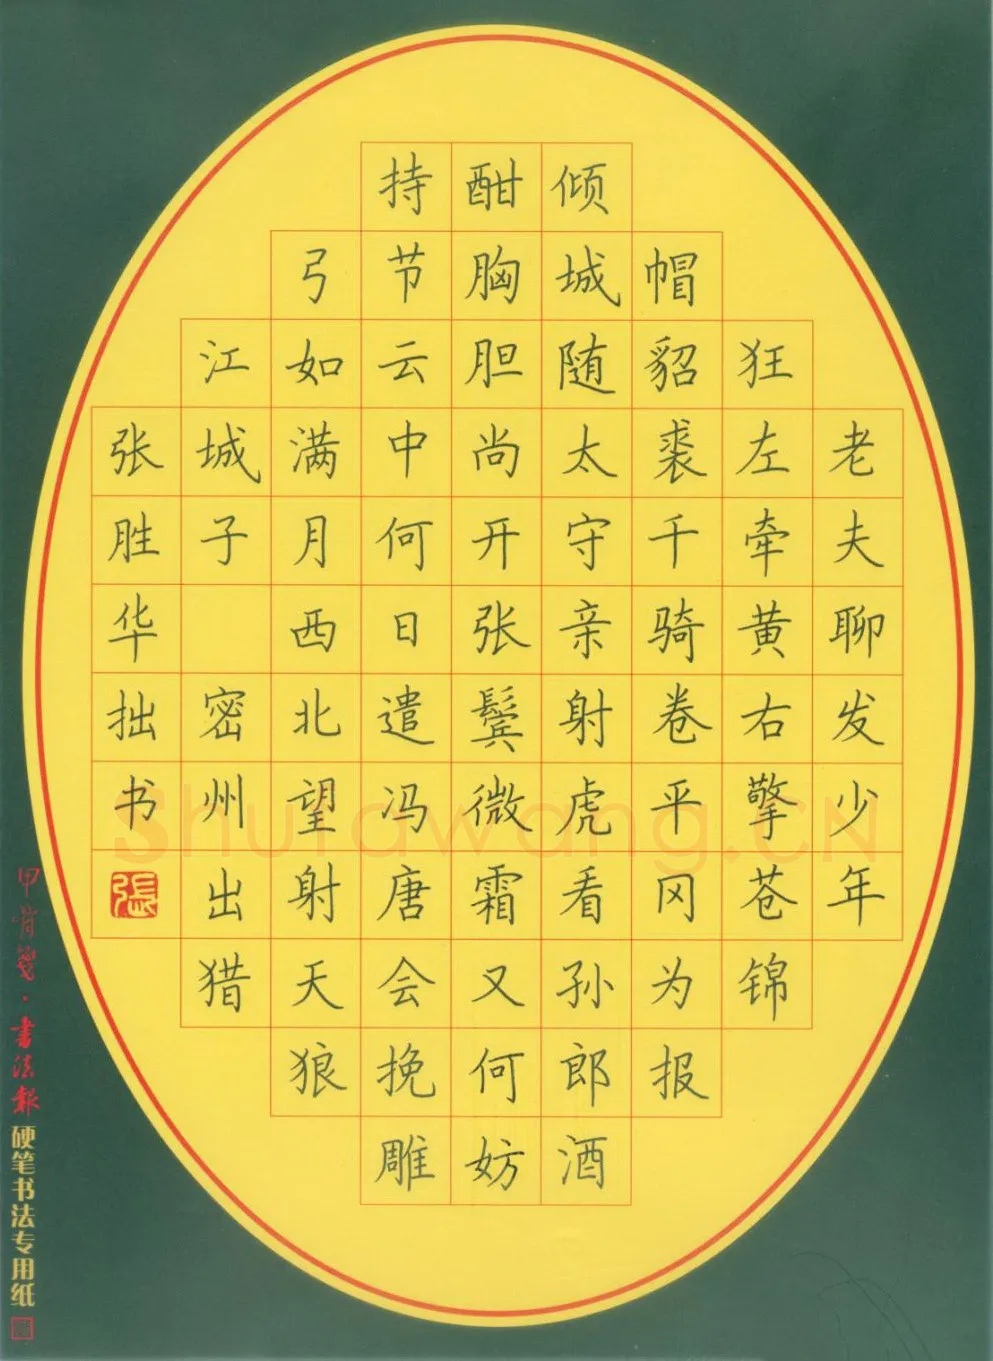 老夫聊发少年
狂左牵黄右擎苍锦
帽貂裘千骑卷平冈为报
倾城随太守亲射虎看孙郎酒
酣胸胆尚开张鬓微霜又何妨
持节云中何日遣冯唐会挽雕
弓如满月西北望射天狼
江城子 密州出猎
张胜华拙书
張
甲骨笺·書法報硬笔书法专用纸
shufawang.CN